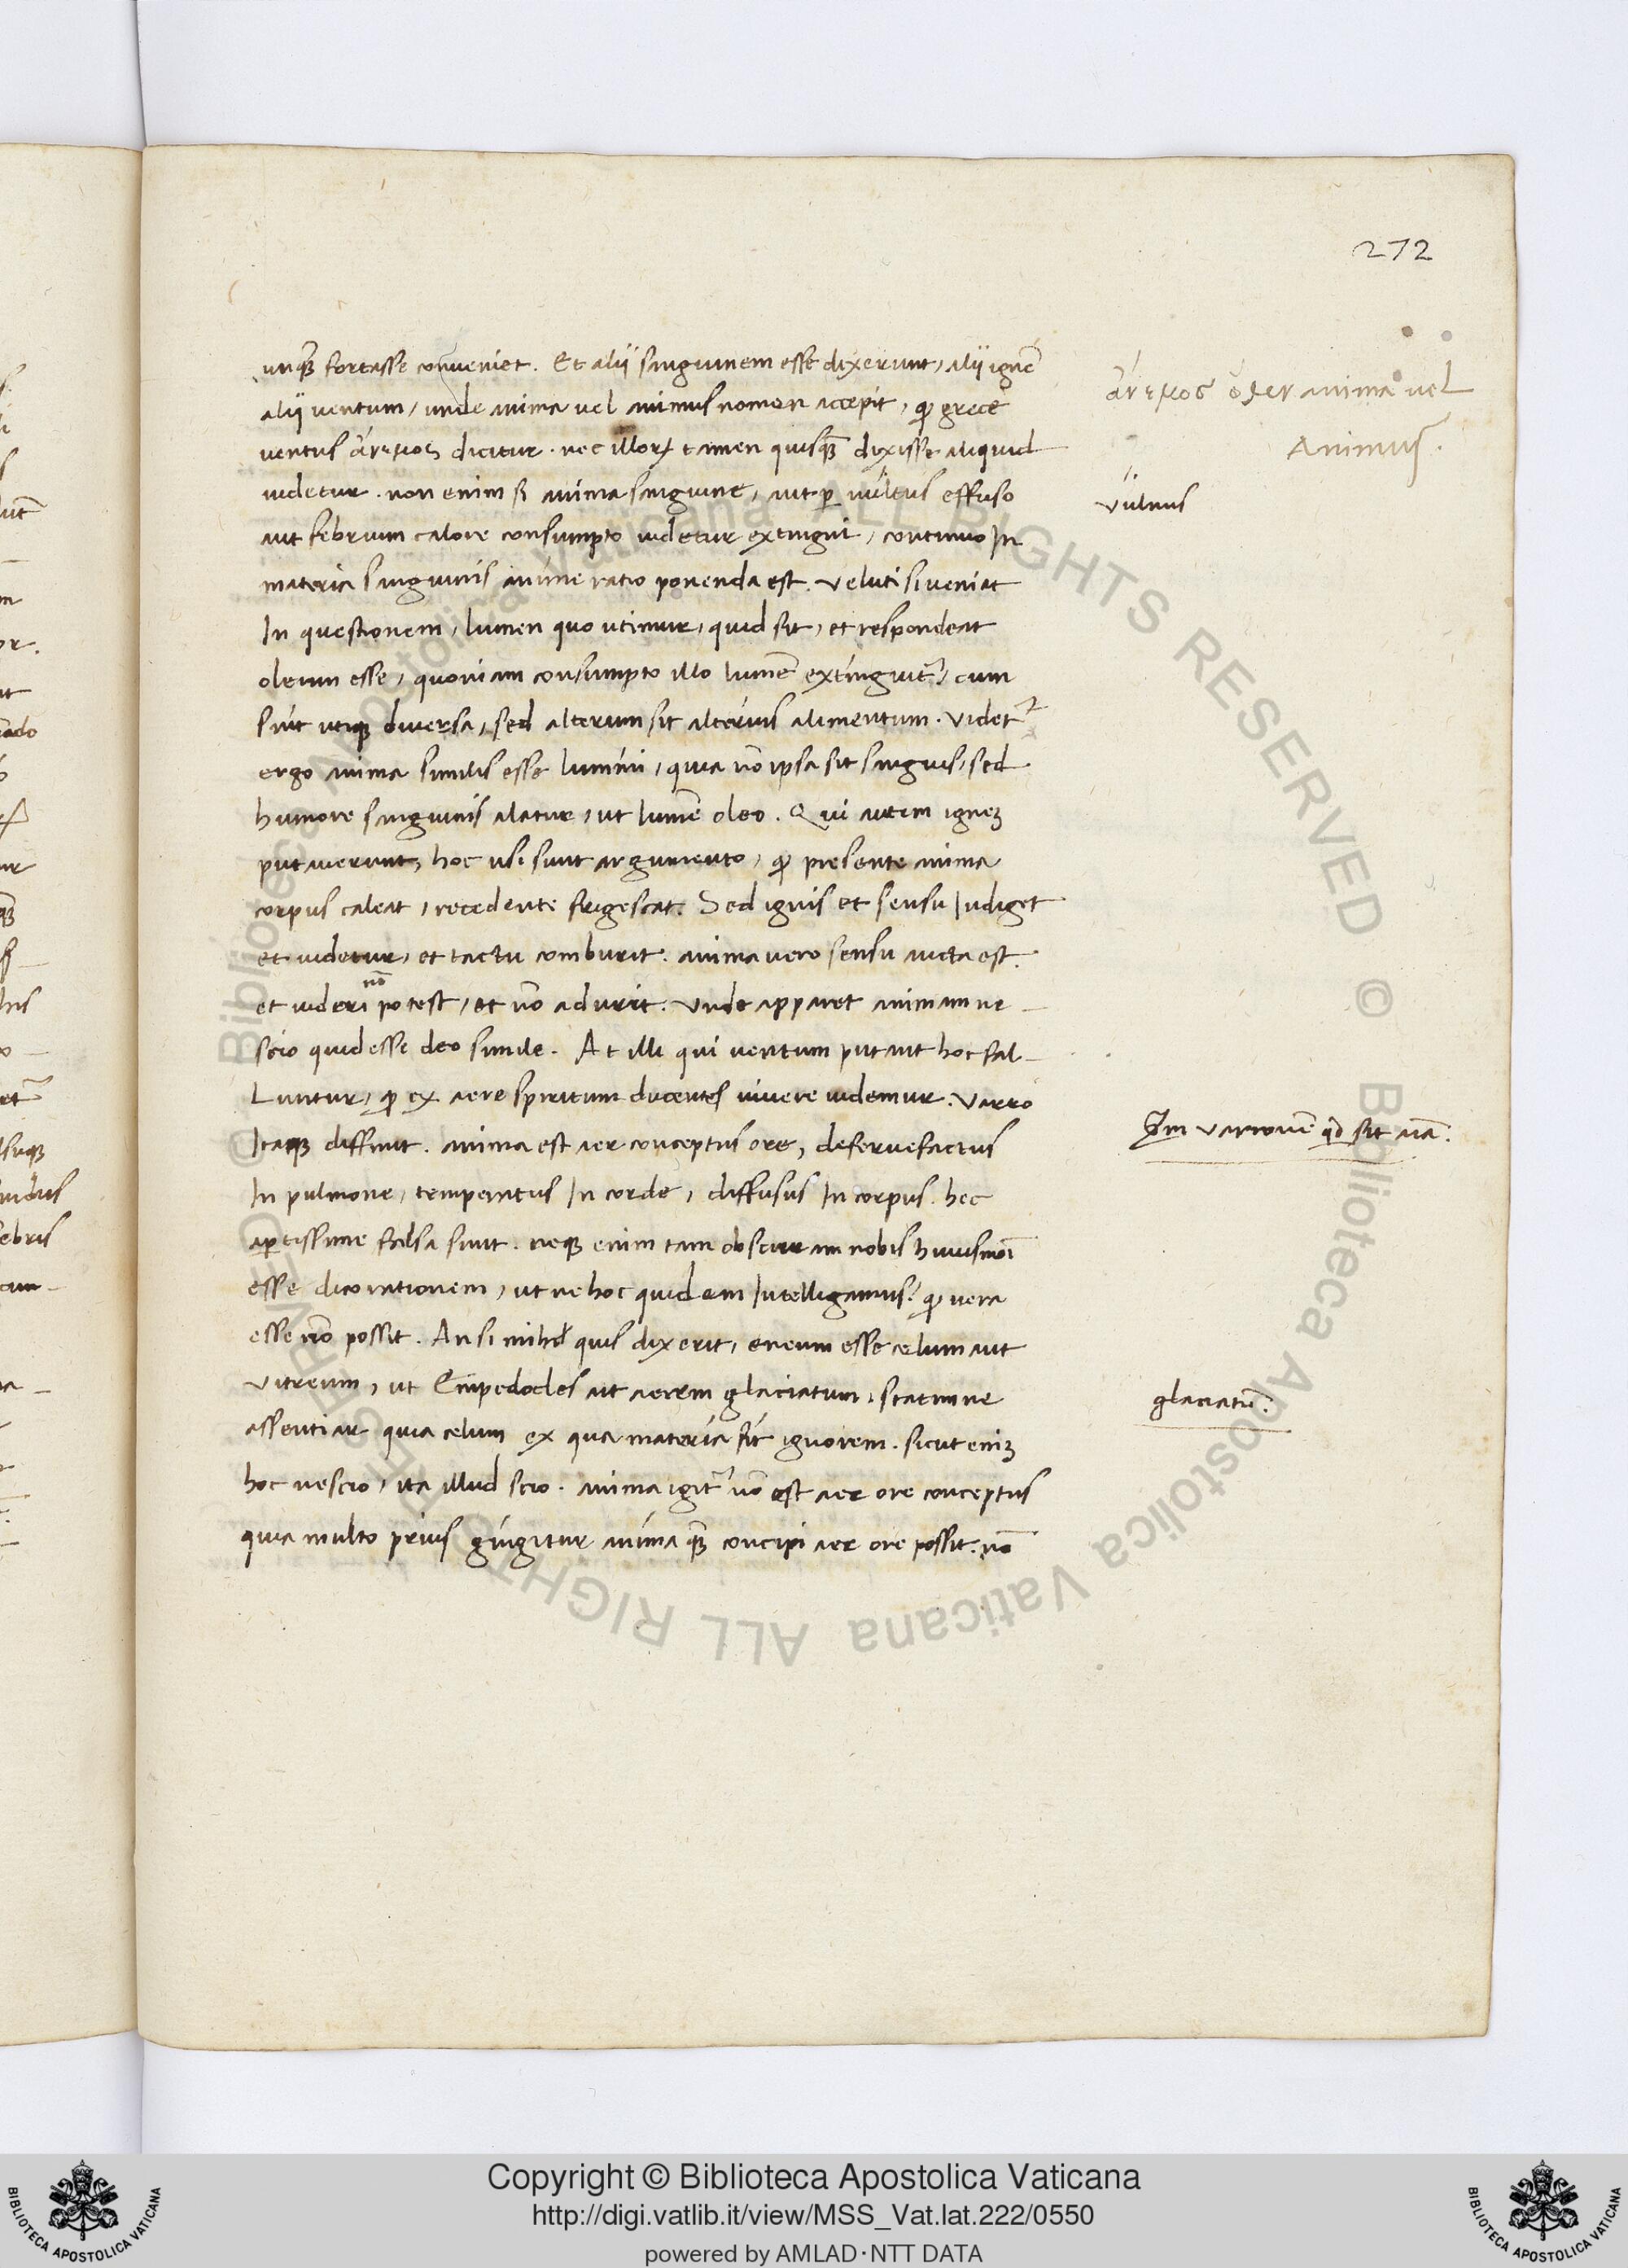 272
unq̄ fortasse conveniet. Et alij sanguinem esse dixerunt, alij ignē
alij ventum, unde anima vel animus nomen accepit, qꝫ grece
ventus ἄνεμος dicitur. nec illoꝝ tamen quisq̄ dixisse aliquid
videtur. non enim si anima sanguine, aut ꝑ vulnus effuso
aut febrium calore consumpto videtur extingui, continuo In
materia sanguinis anime ratio ponenda est. veluti si veniat
In questionem, lumen quo utimur, quid sit, et respondeat
oleum esse, quoniam consumpto illo lumē extinguit᷑, cum
sint utiqꝫ diversa, sed alterum sit alterius alimentum. Videt᷑
ergo anima similis esse lumini, quia nō ipsa sit sanguis, sed
humore sanguinis alatur, ut lumē oleo. Qui autem igneꝫ
putaverunt, hoc usi sunt argumento, qꝫ presente anima
corpus caleat, recedente frigescat. Sed ignis et sensu Indiget
et videtur, et tactu comburit. anima vero sensu aucta est.
et videri nō potest, et nō adurit. Unde apparet animam ne
scio quid esse deo simile. At illi qui ventum putant hoc fal
Luntur, qꝫ ex aere spiritum ducentes vivere videmur. Varro
Itaqꝫ diffinit. anima est aer conceptus ore, defervefactus
In pulmone, temperatus In corde, diffusus In corpus. hec
apertissime falsa sunt. neqꝫ enim tam obscuram nobis huiusmōi
esse dico rationem, ut ne hoc quidem Intelligamus. qꝫ vera
esse nō possit. An si mihi quis dixerit, eneum esse celum aut
vitreum, ut Empedocles aut aerem glaciatum, statimne
assentiar quia celum ex qua materia sit ignorem. sicut eniꝫ
hoc nescio, ita illud scio. anima igit᷑ nō est aer ore conceptus
quia multo prius gingitur anima q̄ concipi aer ore possit. nō
ἄνεμος ὅθεν anima vel
Animus.
vulnus
Qm varronē qd sit aīa.
glaciatū.
Copyright © Biblioteca Apostolica Vaticana
http://digi.vatlib.it/view/MSS_Vat.lat.222/0550
powered by AMLAD·NTT DATA
BIBLIOTECA APOSTOLICA VATICANA
BIBLIOTECA APOSTOLICA VATICANA